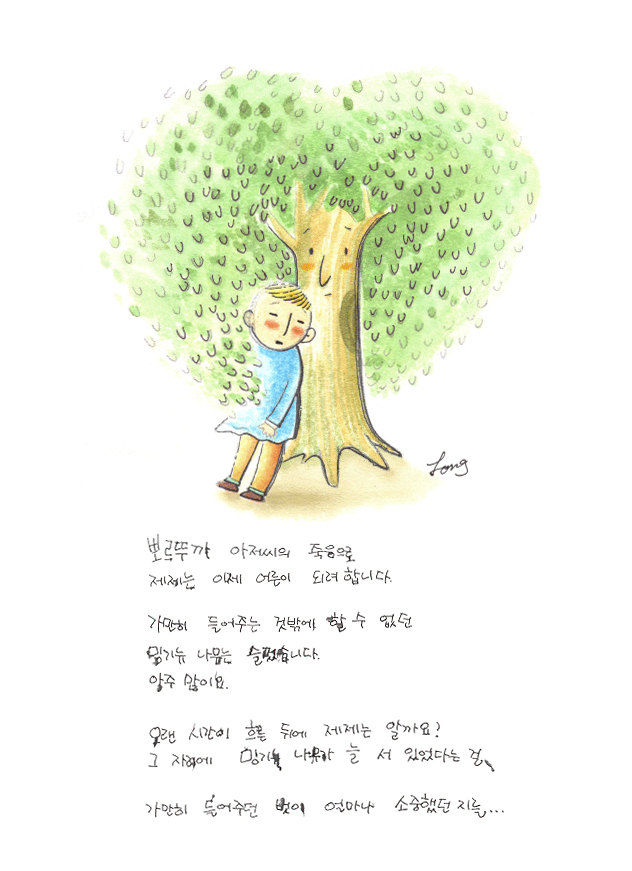 Long
뽀르뚜까 아저씨의 죽음으로
제제는 이제 어른이 되려 합니다.
가만히 들어주는 것밖에 할 수 없던
밍기뉴 나무는 슬펐습니다.
아주 많이요.
오랜 시간이 흐른 뒤에 제제는 알까요?
그 자리에 밍기뉴 나무가 늘 서 있었다는 걸,
가만히 들어주던 벗이 얼마나 소중했던 지를...